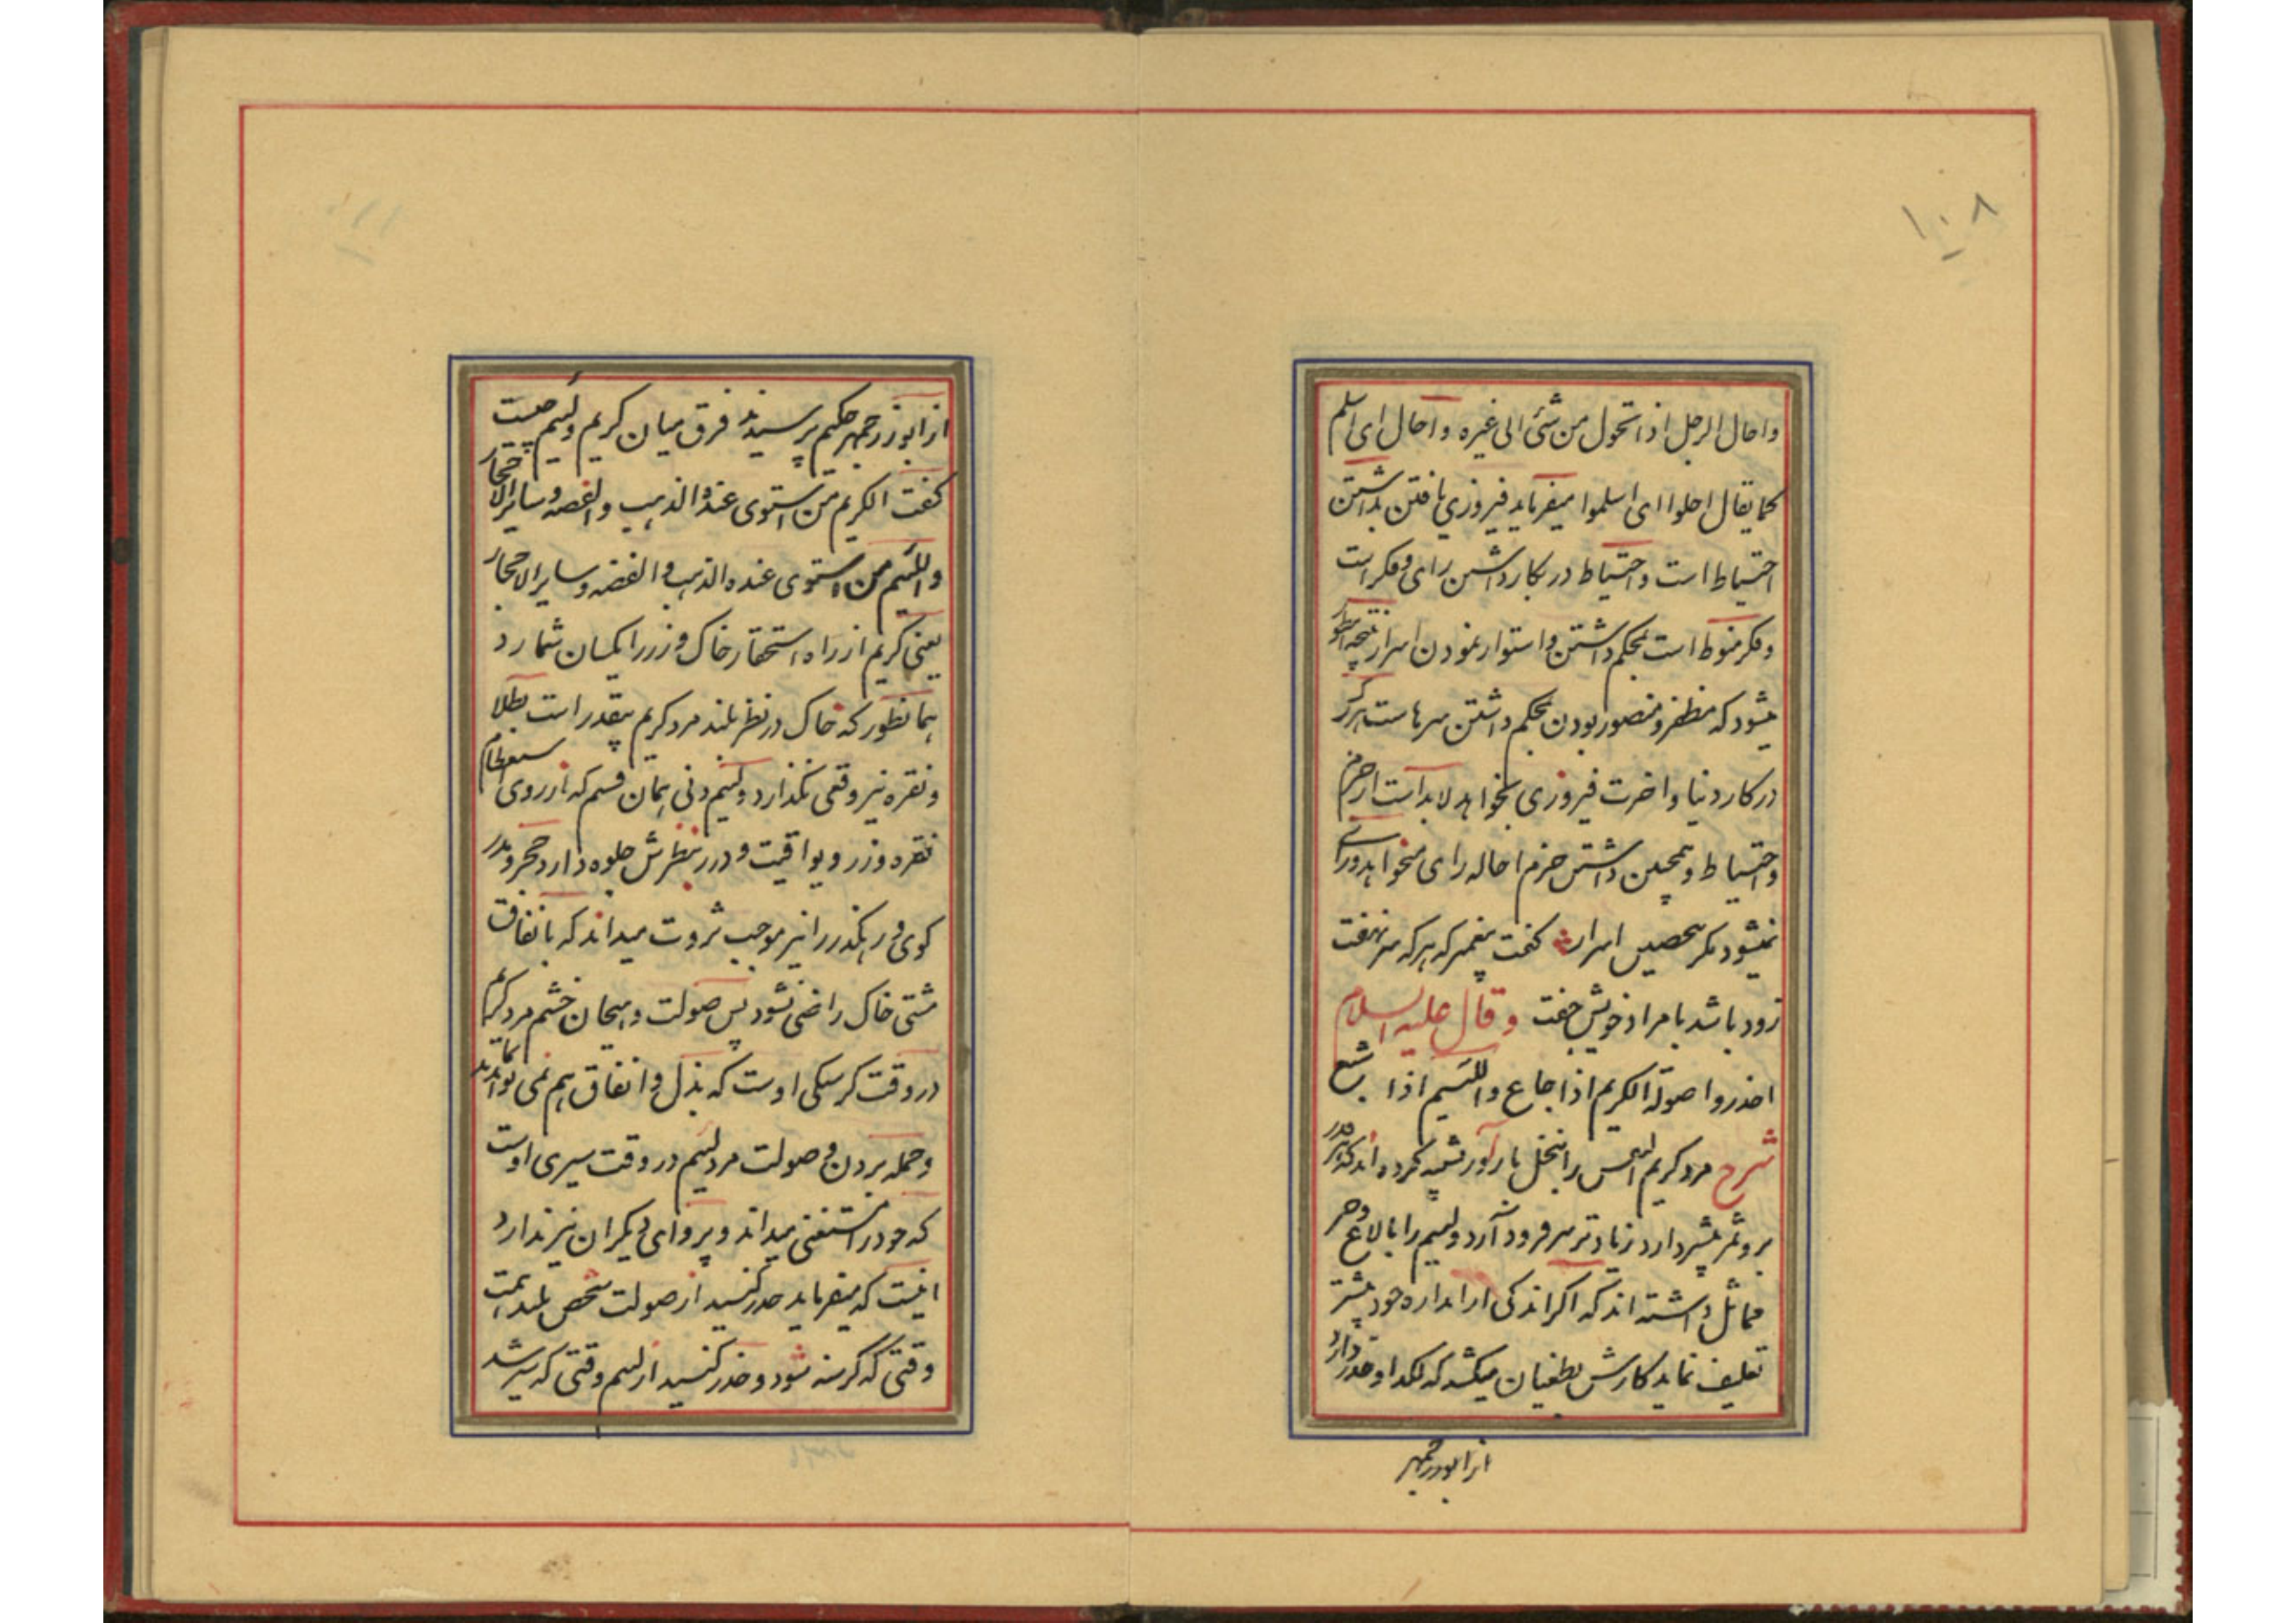 ۱۰۸
واحال الرجل اذا تحول من شئ الی غیره و احال ای اسلم
کما یقال احلوا ای اسلموا میفرماید فیروزی یافتن بداشتن
احتیاط است و احتیاط در بکار داشتن رای و فکر است
و فکر منوط است بمحکم داشتن و استوار نمودن اسرار نتیجه
میشود که مظفر و منصور بودن بمحکم داشتن سرهاست هرکه
در کار دنیا و اخرت فیروزی بخواهد لابد است از حزم
و احتیاط و همچنین داشتن حزم احاله رای میخواهد و رای
نمیشود مکر بتحصین اسرار کفت پیغمبر که هر که سر نهفت
زود باشد با مراد خویش جفت و قال علیه السلام
احذروا صولة الکریم اذا جاع واللئیم اذا شبع
شرح مرد کریم النفس را بنخل بارآور تشبیه کرده‌اند که هر قدر
بر و ثمر بیشتر دارد زیادتر سر فرود آرد و لئیم را بالاغ و خر
مماثل داشته‌اند که اکر اندکی از اندازه خود بیشتر
تعلیف نماید کارش بطغیان میکشد که لکد او حذر دارد
از ابوزرجمهر
از ابوزرجمهر حکیم پرسیدند فرق میان کریم و لئیم چیست
کفت الکریم من استوی عنده الذهب والفضه و سایر الاحجار
واللئیم من استوی عنده الذهب والفضه و سایر الاحجار
یعنی کریم از راه استحقار خاک و زر را یکسان شمارد
همانطور که خاک در نظر بلند مرد کریم بیقدر است بطلا
و نقره نیز وقعی نکذارد و لئیم دنی همان قسم که از روی استعظام
نقره و زر و یواقیت و درر بنظرش جلوه دارد حجر و مدر
کوی و رهکذر را نیز موجب ثروت میداند که بانفاق
مشتی خاک راضی نشود پس صولت و هیجان خشم مرد کریم
در وقت کرسنکی اوست که بذل و انفاق هم نمی تواند
و حمله بردن و صولت مرد لئیم در وقت سیری اوست
که خود را مستغنی میداند و پروای دیکران نیز ندارد
اینست که میفرماید حذر کنید از صولت شخص بلند همت
وقتی که کرسنه شود و حذر کنید از لئیم وقتی که سیر شد